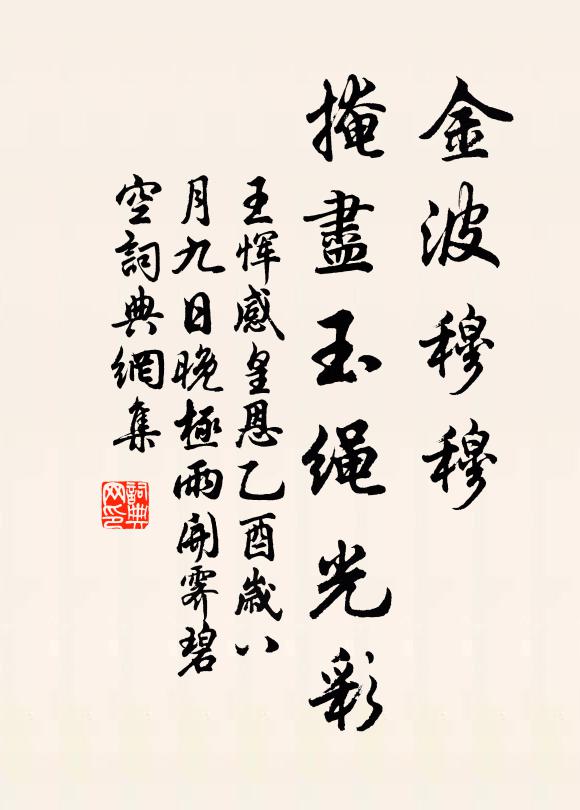 金波穆穆
掩盡玉绳光彩
王恽感皇恩乙酉歲八
月九日晚極雨開霽碧
空詞典網集
詞典
网印